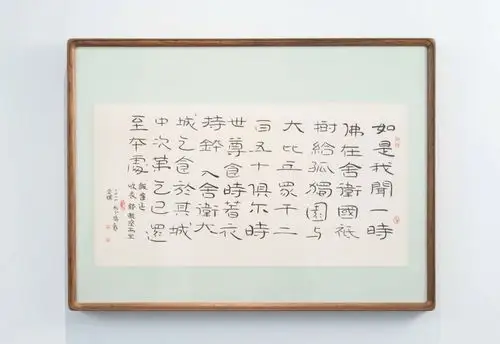 如是我聞一時
佛在舍衛國祇
樹給孤獨園与
大比丘眾千二
百五十俱尒時
世尊食時著衣
持鉢入舍衛大
城乞食於其城
中次第乞已還
至本處
飯食迄
收衣鉢敷座而坐